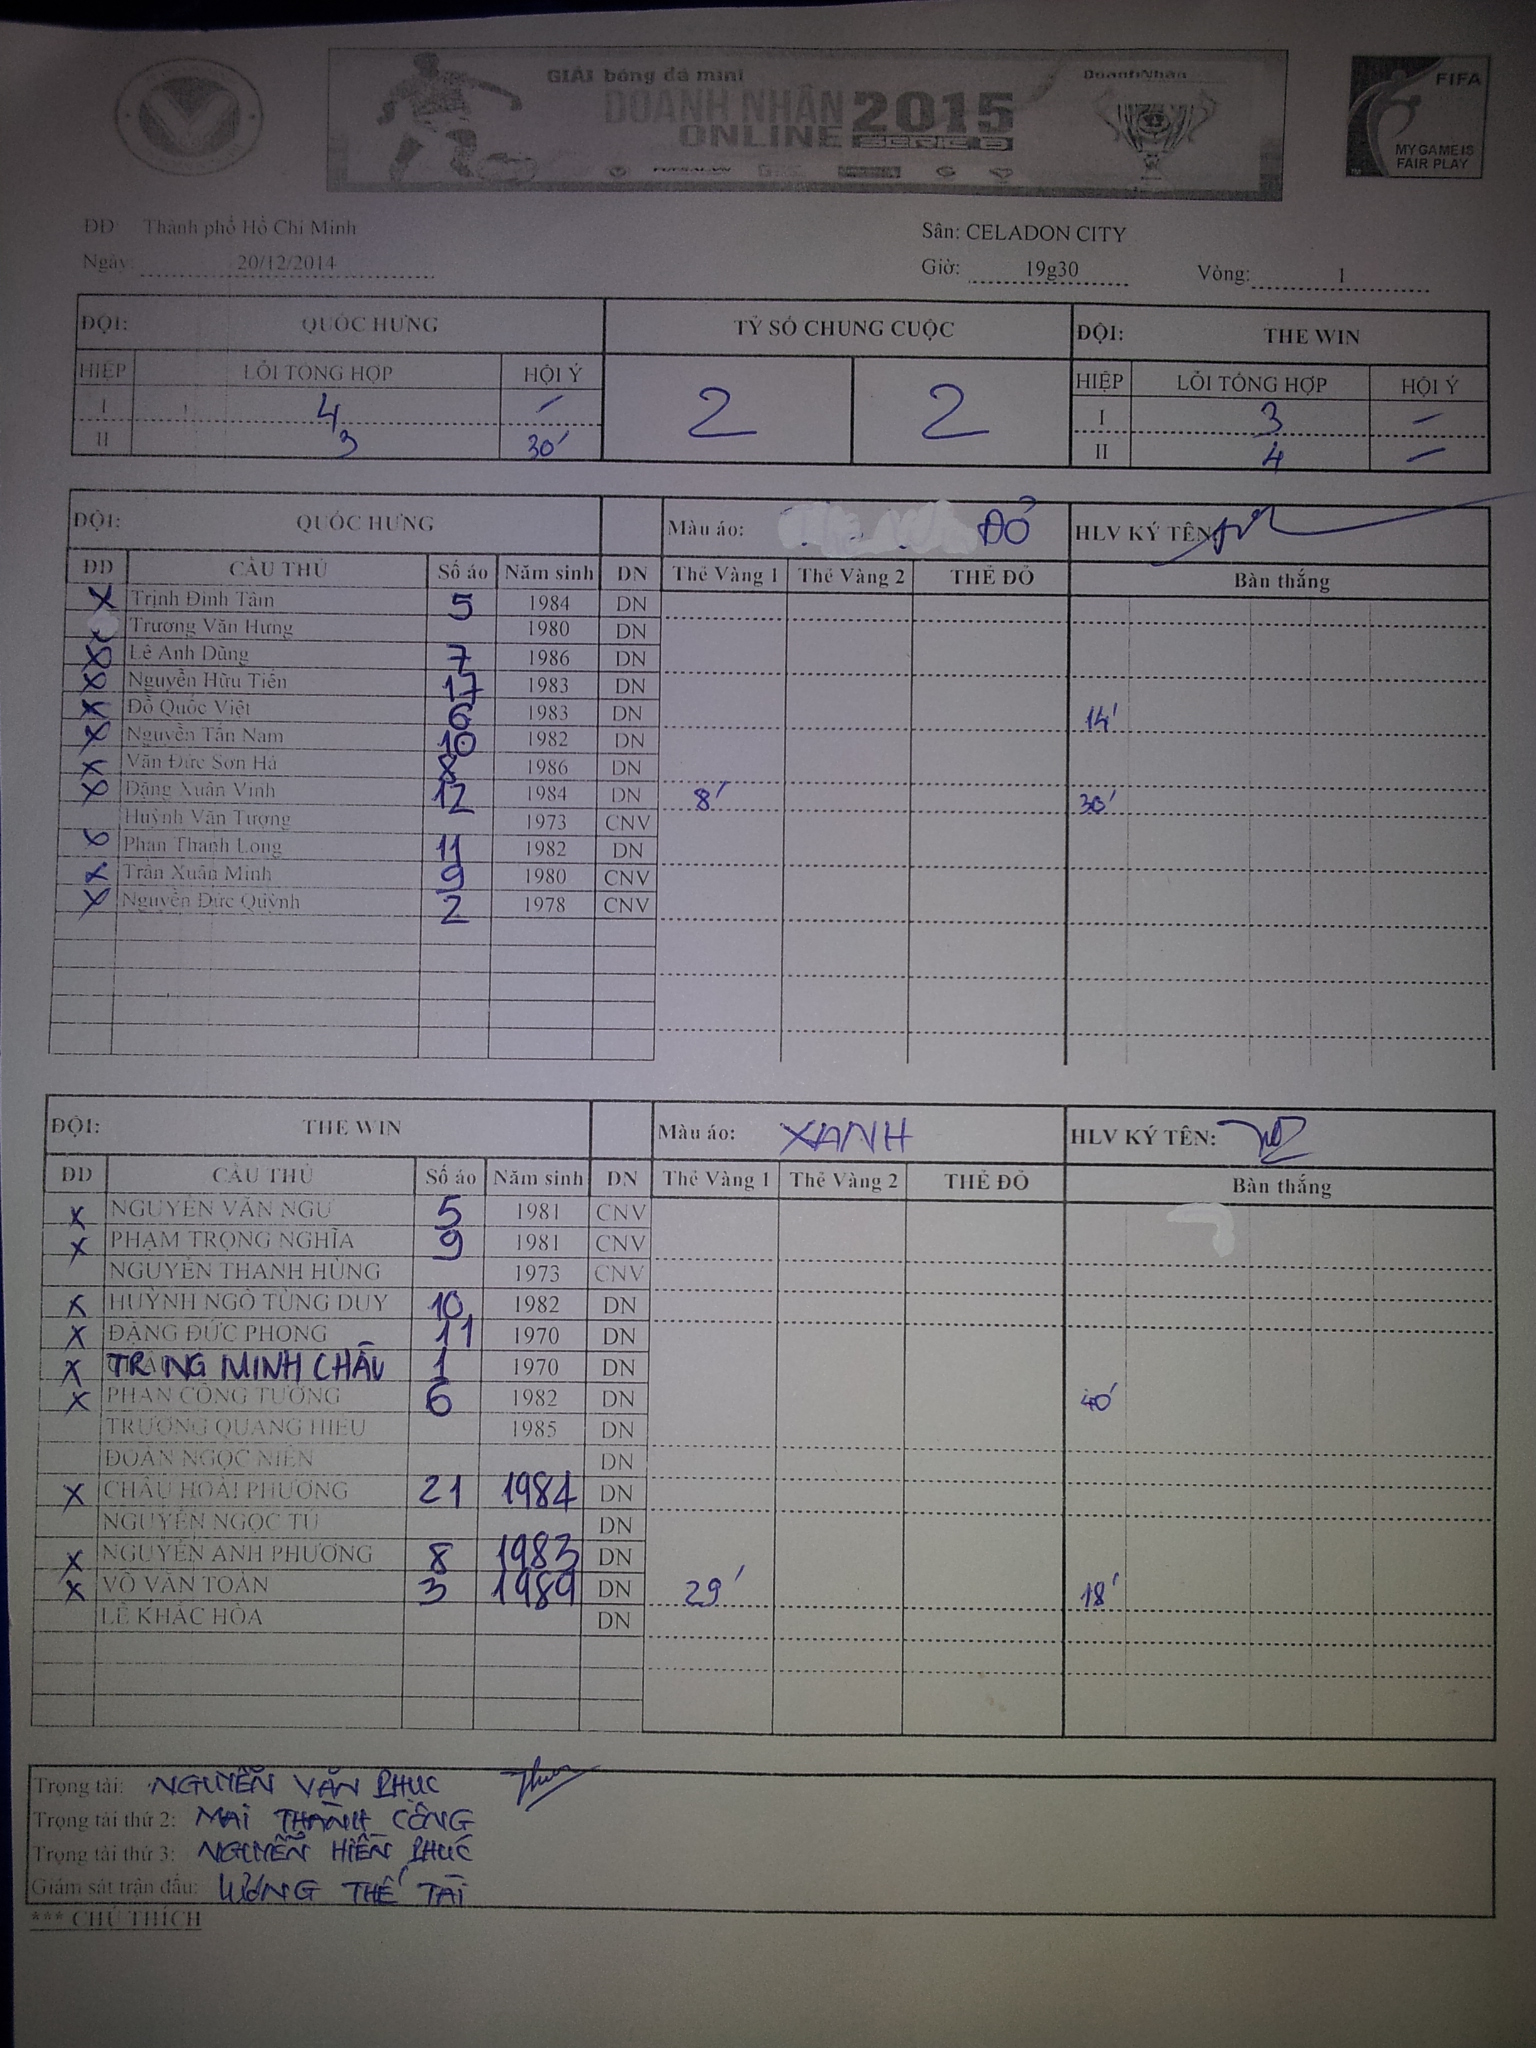 GIẢI bóng đá mini
DoanhNhân
DOANH NHÂN 2015
ONLINE SERIE B
FIFA
MY GAME IS
FAIR PLAY
ĐĐ Thành phố Hồ Chí Minh Sân: CELADON CITY
Ngày: 20/12/2014 Giờ: 19g30 Vòng: 1
ĐỘI: QUỐC HƯNG TỶ SỐ CHUNG CUỘC ĐỘI: THE WIN
HIỆP LỖI TỔNG HỢP HỘI Ý 2 2 HIỆP LỖI TỔNG HỢP HỘI Ý
I 4 - I 3 -
II 3 30' II 4 -
ĐỘI: QUỐC HƯNG Màu áo: ĐỎ HLV KÝ TÊN:
ĐD CẦU THỦ Số áo Năm sinh DN Thẻ Vàng 1 Thẻ Vàng 2 THẺ ĐỎ Bàn thắng
X Trịnh Đình Tâm 5 1984 DN
Trương Văn Hưng 1980 DN
X Lê Anh Dũng 7 1986 DN
X Nguyễn Hữu Tiến 17 1983 DN
X Đỗ Quốc Việt 6 1983 DN 14'
X Nguyễn Tấn Nam 10 1982 DN
X Văn Đức Sơn Hà 8 1986 DN
X Đặng Xuân Vinh 12 1984 DN 8' 30'
Huỳnh Văn Tượng 1973 CNV
X Phan Thanh Long 11 1982 DN
X Trần Xuân Minh 9 1980 CNV
X Nguyễn Đức Quỳnh 2 1978 CNV
ĐỘI: THE WIN Màu áo: XANH HLV KÝ TÊN:
ĐD CẦU THỦ Số áo Năm sinh DN Thẻ Vàng 1 Thẻ Vàng 2 THẺ ĐỎ Bàn thắng
X NGUYỄN VĂN NGƯ 5 1981 CNV
X PHẠM TRỌNG NGHĨA 9 1981 CNV
NGUYỄN THANH HÙNG 1973 CNV
X HUỲNH NGÔ TÙNG DUY 10 1982 DN
X ĐẶNG ĐỨC PHONG 11 1970 DN
X MINH CHÂU 1 1970 DN
X PHAN CÔNG TƯỜNG 6 1982 DN 40'
TRƯƠNG QUANG HIẾU 1985 DN
ĐOÀN NGỌC NIÊN DN
X CHÂU HOÀI PHƯƠNG 21 1984 DN
NGUYỄN NGỌC TÚ DN
X NGUYỄN ANH PHƯƠNG 8 1983 DN
X VÕ VĂN TOÀN 3 1989 DN 29' 18'
LÊ KHẮC HÒA DN
Trọng tài: NGUYỄN VĂN PHUC
Trọng tài thứ 2: MAI THÀNH CÔNG
Trọng tài thứ 3: NGUYỄN HIỀN PHUC
Giám sát trận đấu: LƯƠNG THẾ TÀI
*** CHÚ THÍCH